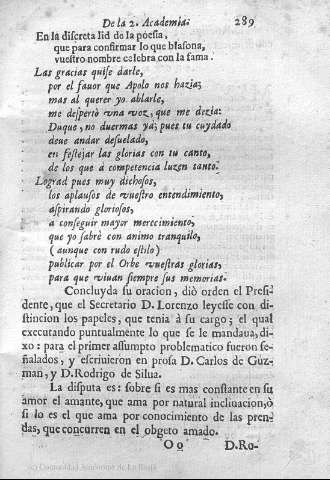 De la 2. Academia. 289
En la discreta lid de la poesia,
que para confirmar lo que blasona,
vuestro nombre celebra con la fama.
Las gracias quise darle,
por el fauor que Apolo nos hazia;
mas al querer yo ablarle,
me despertò vna voz, que me dezia:
Duque, no duermas ya; pues tu cuydado
deue andar desuelado,
en festejar las glorias con tu canto,
de los que a competencia luzen tanto.
Lograd pues muy dichosos,
los aplausos de vuestro entendimiento,
aspirando gloriosos,
a conseguir mayor merecimiento,
que yo sabrè con animo tranquilo,
(aunque con rudo estilo)
publicar por el Orbe vuestras glorias,
para que viuan siempre sus memorias.
Concluyda su oracion, diò orden el Presi-
dente, que el Secretario D. Lorenzo leyesse con dis-
tincion los papeles, que tenia à su cargo; el qual
executando puntualmente lo que se le mandaua, di-
xo: para el primer assumpto problematico fueron se-
ñalados, y escriuieron en prosa D. Carlos de Guz-
man, y D. Rodrigo de Silua.
La disputa es: sobre si es mas constante en su
amor el amante, que ama por natural inclinacion, ò
si lo es el que ama por conocimiento de las pren-
das, que concurren en el obgeto amado.
Oo D. Ro-
(c) Comunidad Autónoma de La Rioja